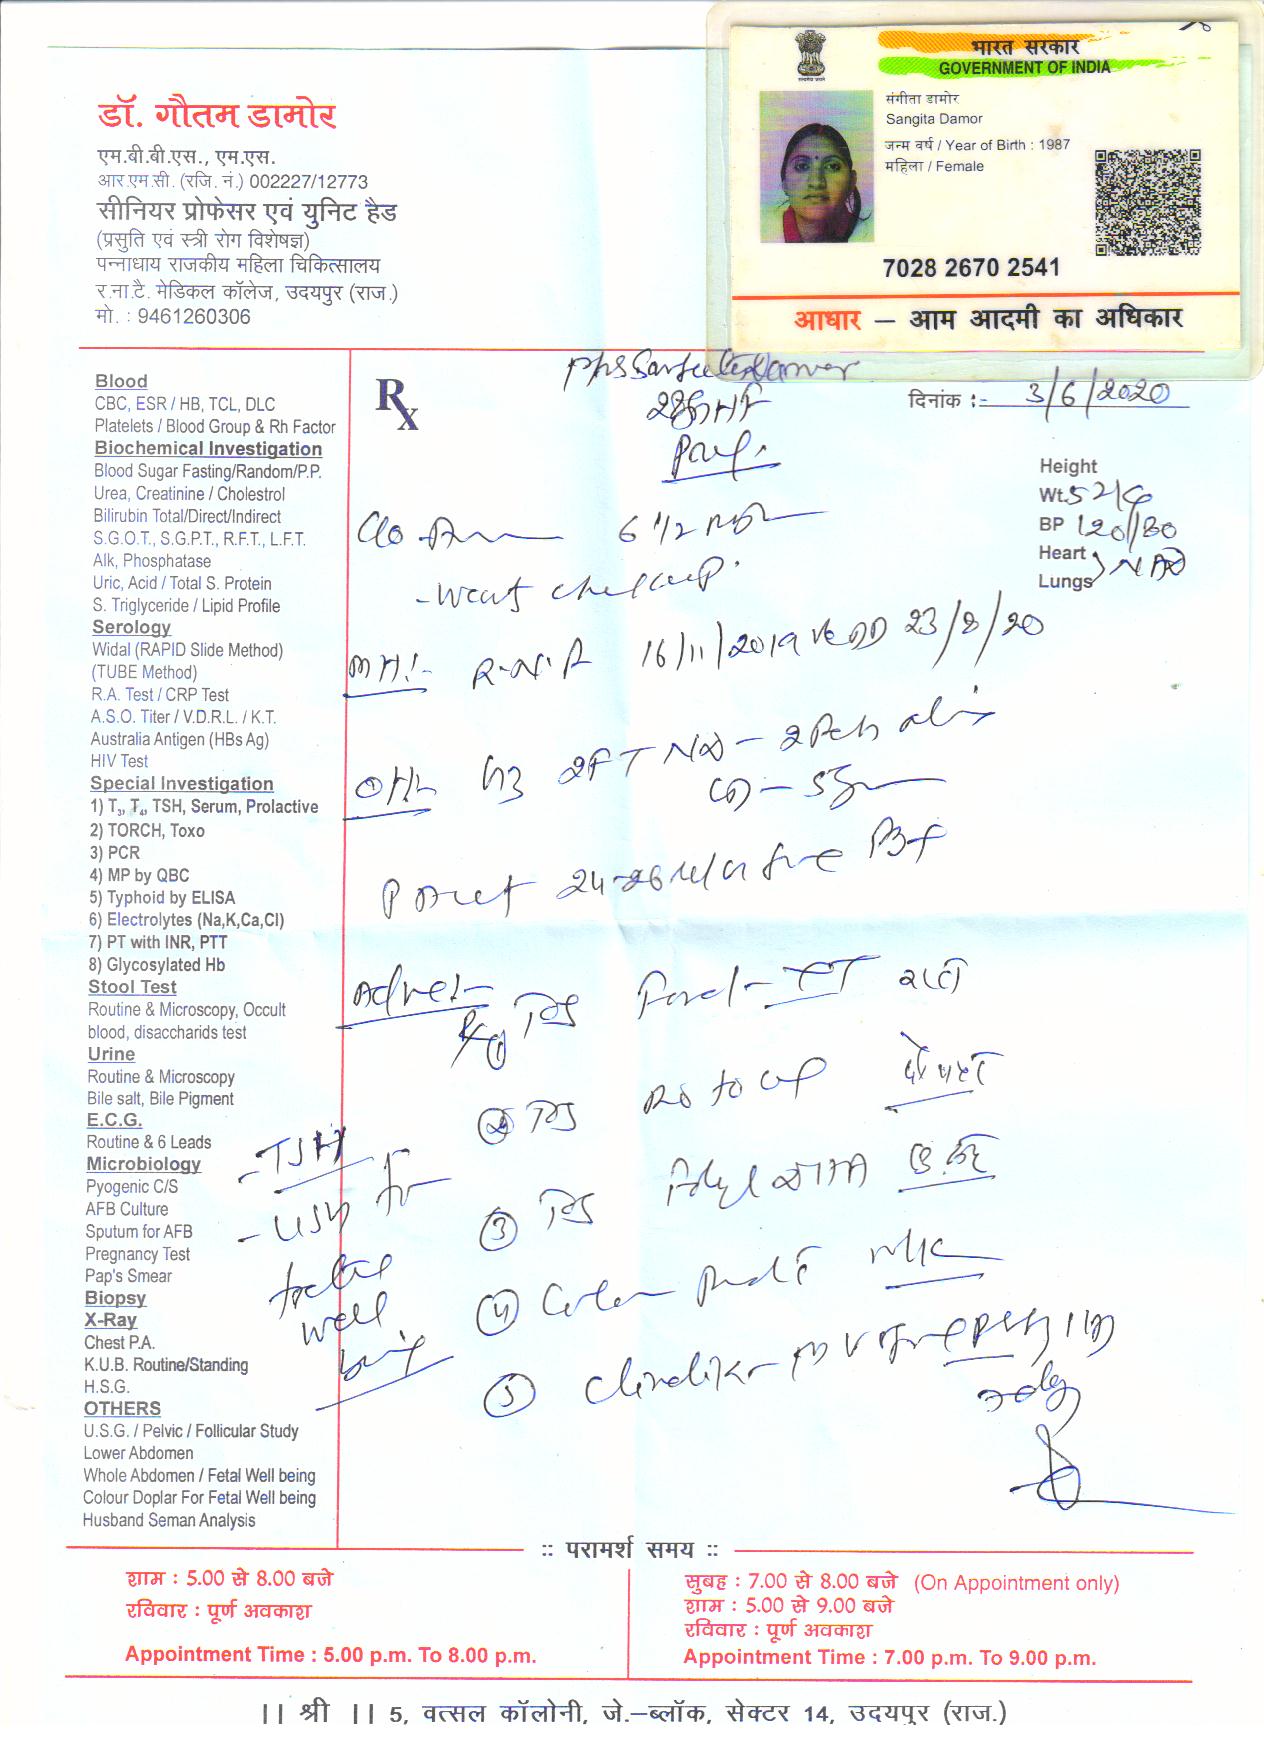 भारत सरकार
GOVERNMENT OF INDIA
संगीता डामोर
Sangita Damor
जन्म वर्ष / Year of Birth : 1987
महिला / Female
7028 2670 2541
आधार – आम आदमी का अधिकार
डॉ. गौतम डामोर
एम.बी.बी.एस., एम.एस.
आर.एम.सी. (रजि. नं.) 002227/12773
सीनियर प्रोफेसर एवं युनिट हैड
(प्रसुति एवं स्त्री रोग विशेषज्ञ)
पन्नाधाय राजकीय महिला चिकित्सालय
र.ना.टै. मेडिकल कॉलेज, उदयपुर (राज.)
मो. : 9461260306
Rx
दिनांक :- 3/6/2020
Height
Wt. 52
BP 120/80
Heart
Lungs NAD
6 1/2
- want checkup.
MH:- 16/11/2019 EDD 23/8/20
OH:- G3 2FTND -
24-26
Advice:-
①
②
③
④
⑤
- TSH
- USG for
foetal
well
being
Blood
CBC, ESR / HB, TCL, DLC
Platelets / Blood Group & Rh Factor
Biochemical Investigation
Blood Sugar Fasting/Random/P.P.
Urea, Creatinine / Cholestrol
Bilirubin Total/Direct/Indirect
S.G.O.T., S.G.P.T., R.F.T., L.F.T.
Alk, Phosphatase
Uric, Acid / Total S. Protein
S. Triglyceride / Lipid Profile
Serology
Widal (RAPID Slide Method)
(TUBE Method)
R.A. Test / CRP Test
A.S.O. Titer / V.D.R.L. / K.T.
Australia Antigen (HBs Ag)
HIV Test
Special Investigation
1) T₃, T₄, TSH, Serum, Prolactive
2) TORCH, Toxo
3) PCR
4) MP by QBC
5) Typhoid by ELISA
6) Electrolytes (Na,K,Ca,Cl)
7) PT with INR, PTT
8) Glycosylated Hb
Stool Test
Routine & Microscopy, Occult
blood, disaccharids test
Urine
Routine & Microscopy
Bile salt, Bile Pigment
E.C.G.
Routine & 6 Leads
Microbiology
Pyogenic C/S
AFB Culture
Sputum for AFB
Pregnancy Test
Pap's Smear
Biopsy
X-Ray
Chest P.A.
K.U.B. Routine/Standing
H.S.G.
OTHERS
U.S.G. / Pelvic / Follicular Study
Lower Abdomen
Whole Abdomen / Fetal Well being
Colour Doplar For Fetal Well being
Husband Seman Analysis
:: परामर्श समय ::
शाम : 5.00 से 8.00 बजे
रविवार : पूर्ण अवकाश
Appointment Time : 5.00 p.m. To 8.00 p.m.
सुबह : 7.00 से 8.00 बजे (On Appointment only)
शाम : 5.00 से 9.00 बजे
रविवार : पूर्ण अवकाश
Appointment Time : 7.00 p.m. To 9.00 p.m.
|| श्री || 5, वत्सल कॉलोनी, जे.–ब्लॉक, सेक्टर 14, उदयपुर (राज.)